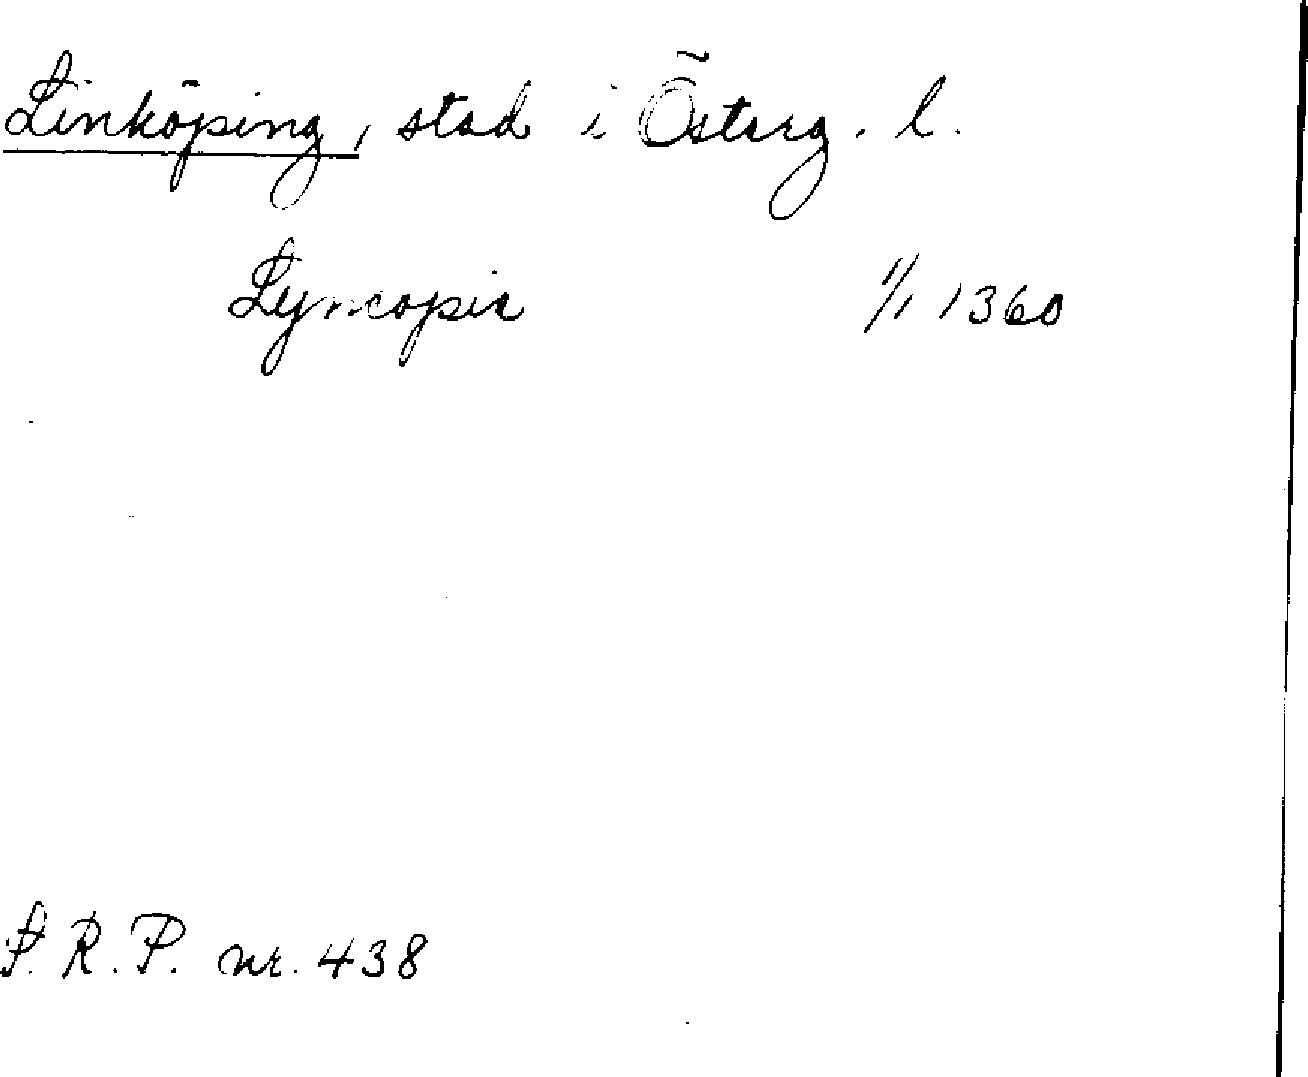 Linköping, stad i Österg. l.
Lyncopia 1/1 1360
S. R. P. nr. 438